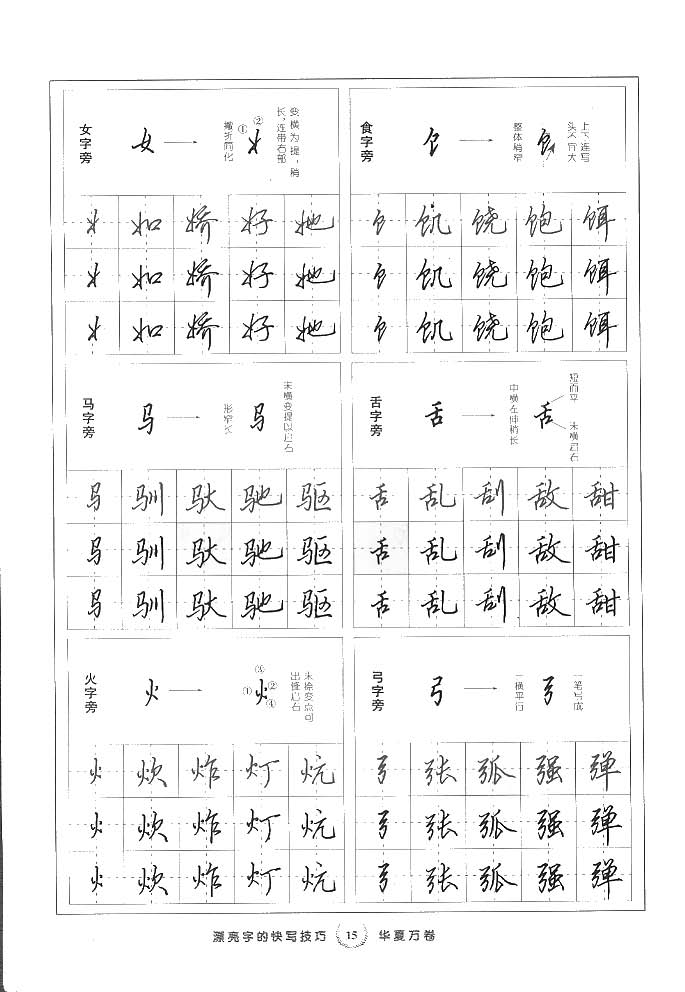 女字旁
女
撇折简化
①
②
变横为提，稍
长，连带右部
如 娇 好 她
如 娇 好 她
如 娇 好 她
食字旁
饣
整体稍窄
饣
上下连写
头不宜大
饣 饥 饶 饱 饵
饣 饥 饶 饱 饵
饣 饥 饶 饱 饵
马字旁
马
形窄长
马
末横变提以启右
马 驯 驮 驰 驱
马 驯 驮 驰 驱
马 驯 驮 驰 驱
舌字旁
舌
中横左伸稍长
舌
短而平
末横启右
舌 乱 刮 敌 甜
舌 乱 刮 敌 甜
舌 乱 刮 敌 甜
火字旁
火
①
③
火
②
④
末捺变点可
出锋启右
火 炊 炸 灯 炕
火 炊 炸 灯 炕
火 炊 炸 灯 炕
弓字旁
弓
二横平行
弓
一笔写成
弓 张 弧 强 弹
弓 张 弧 强 弹
弓 张 弧 强 弹
漂亮字的快写技巧 15 华夏万卷